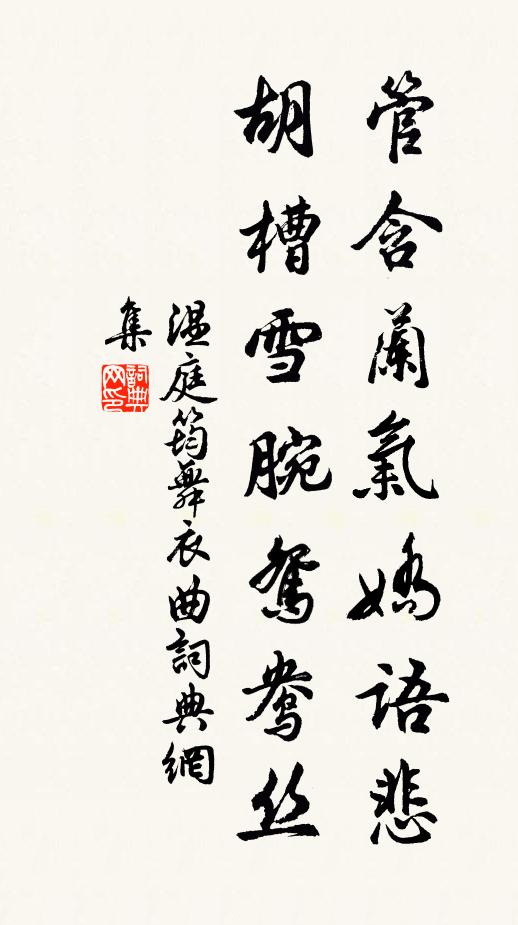 管含蘭氣嬌語悲
胡槽雪腕鴛鴦丝
温庭筠舞衣曲詞典網
集
詞典
网印